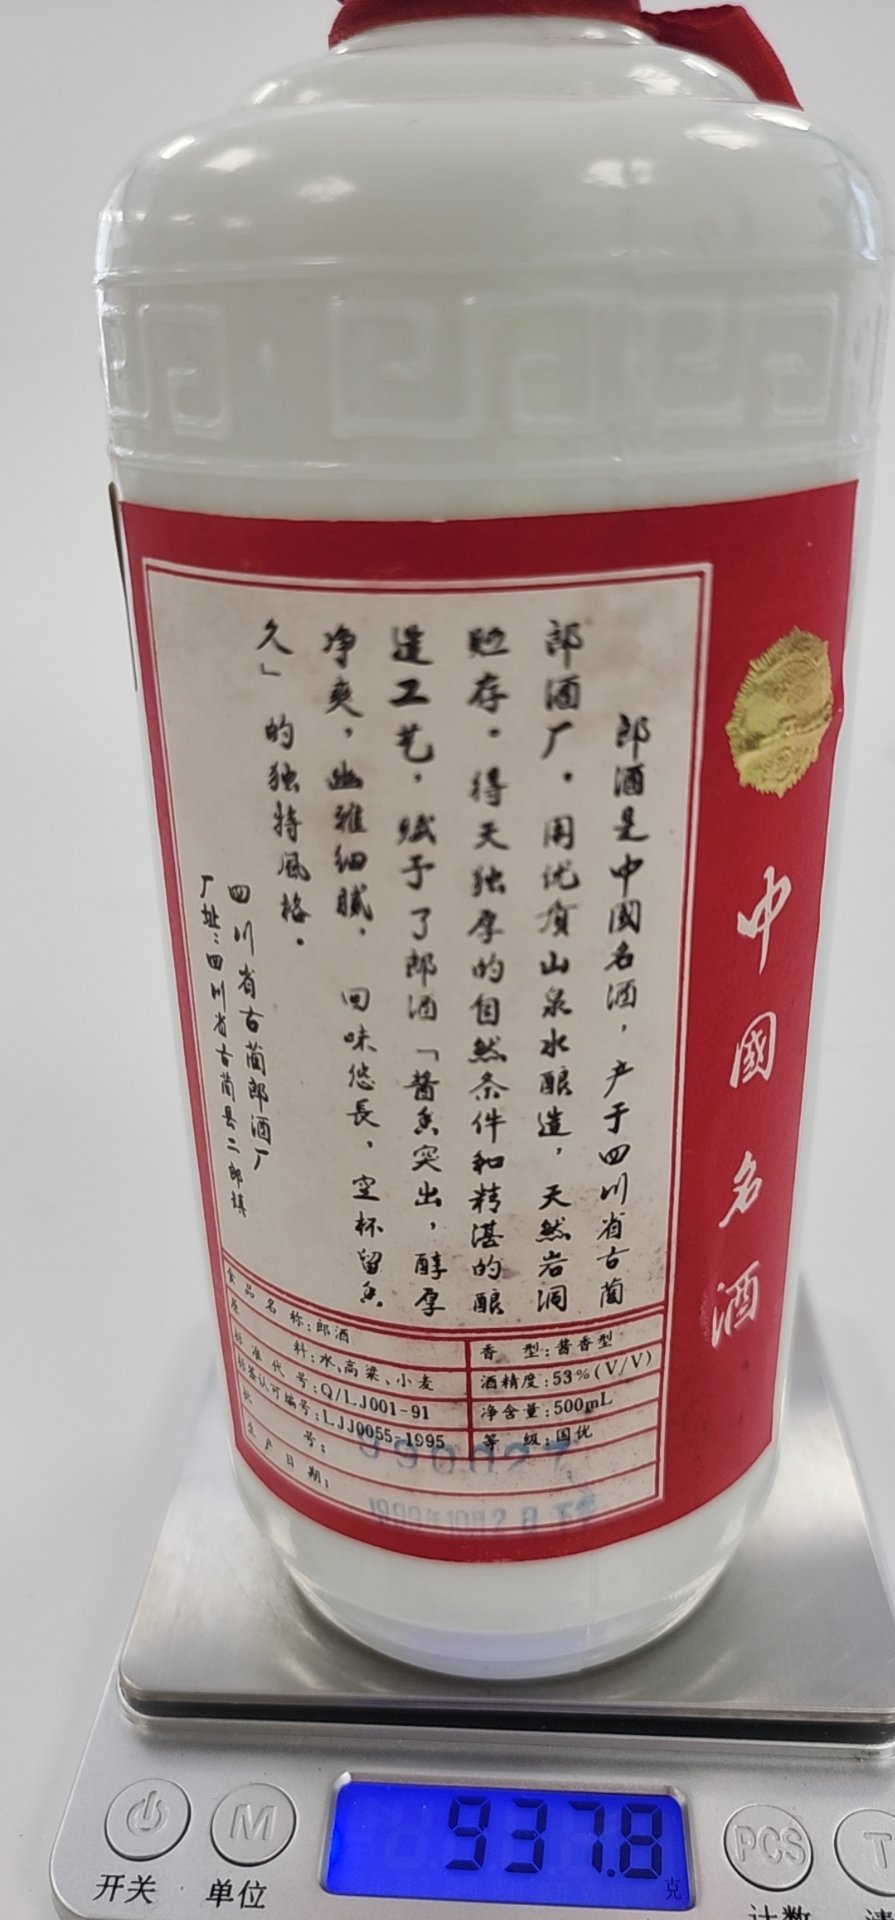 郎酒是中國名酒，产于四川省古蔺
郎酒厂。用优质山泉水酿造，天然岩洞
贮存。得天独厚的自然条件和精湛的酿
造工艺，赋予了郎酒「酱香突出，醇厚
净爽，幽雅细腻，回味悠長，空杯留香
久」的独特风格。
四川省古蔺郎酒厂
厂址：四川省古蔺县二郎镇
中國名酒
食品名称：郎酒
原料：水、高粱、小麦
标准代号：Q/LJ001-91
标签认可编号：LJJ0055-1995
批号：
生产日期：
香型：酱香型
酒精度：53%(V/V)
净含量：500mL
等级：国优
1999年10月2日
937.8
克
M
PCS
T
开关
单位
计数